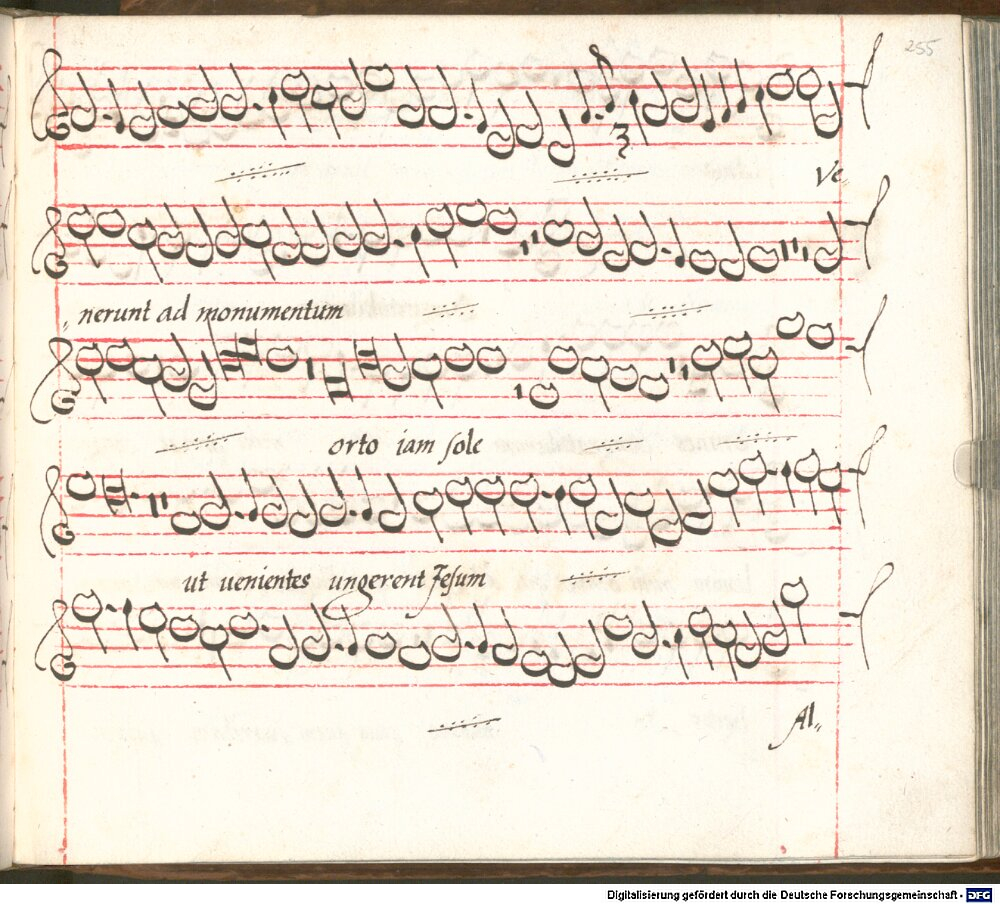 255
Ve„
„nerunt ad monumentum
orto iam sole
ut uenientes ungerent Jesum
Al„
Digitalisierung gefördert durch die Deutsche Forschungsgemeinschaft - DFG